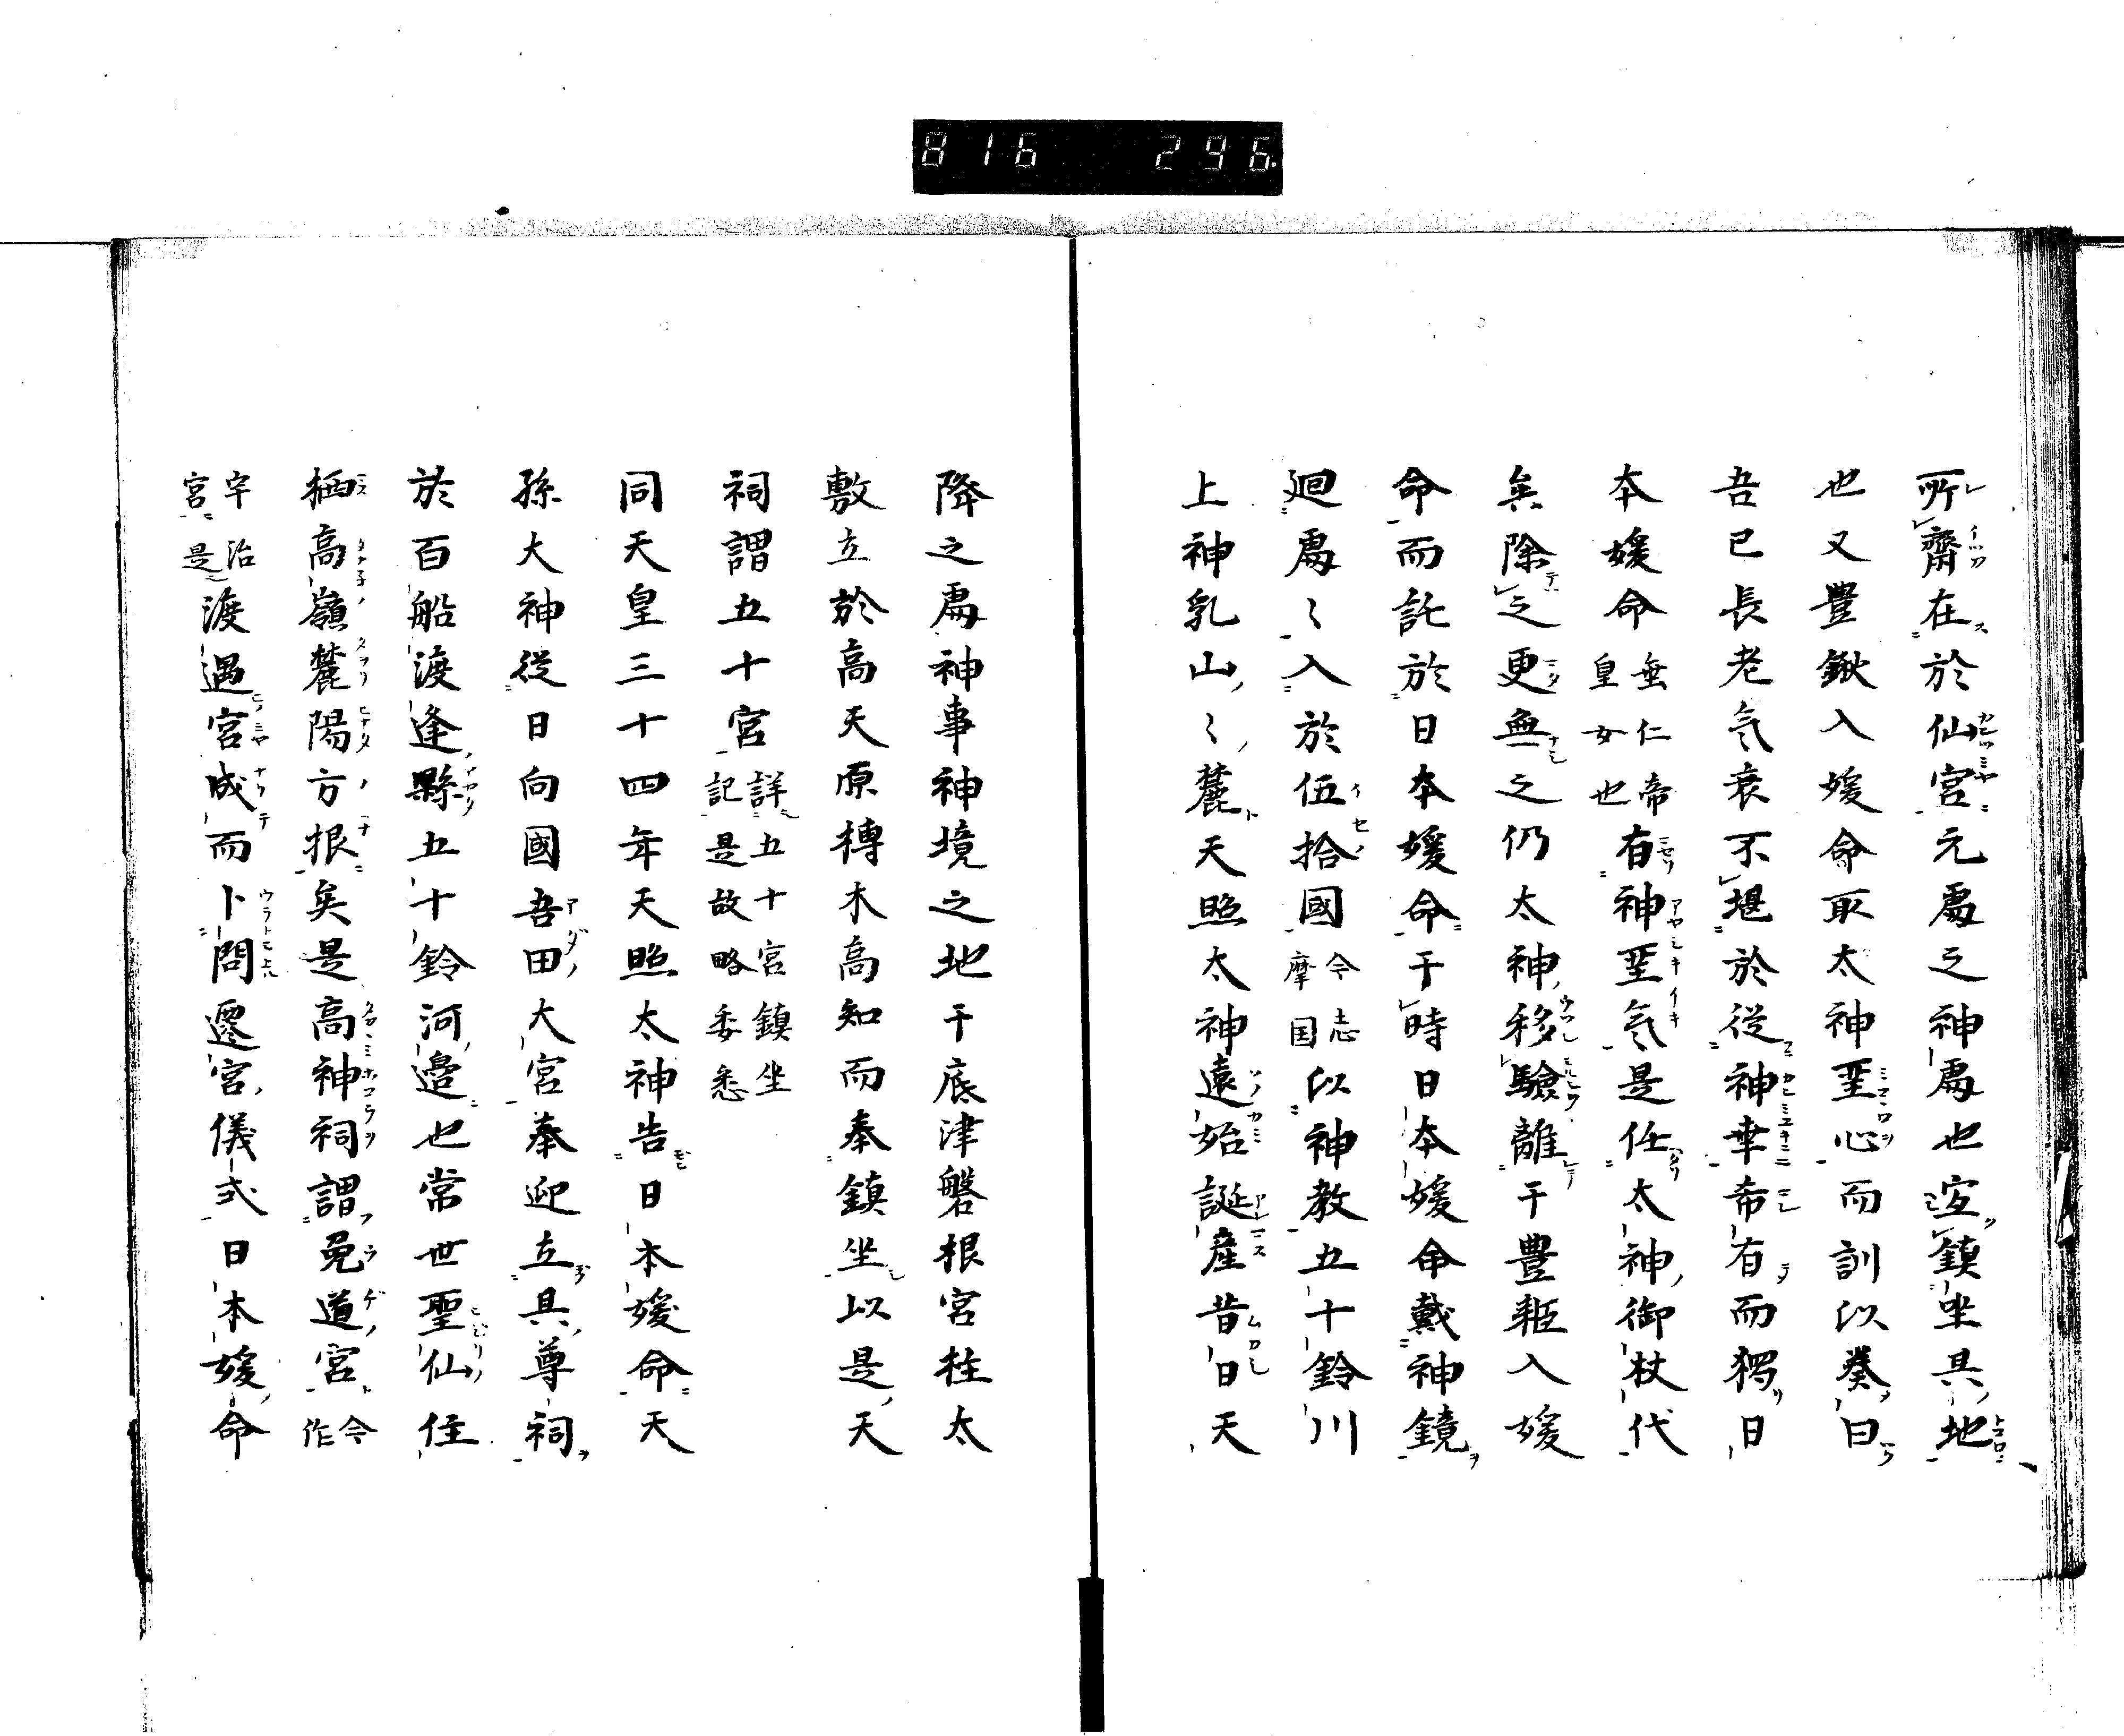 816 296
所齋在於仙宮元處之神處也定鎮坐具地
也又豊鍬入媛命取太神聖心而訓以奏曰
吾已長老氣衰不堪於從神幸希有而猸日
本媛命垂仁帝皇女也有神聖氣是任太神御杖代
矣除之更無之仍太神移驗離于豊耟入媛
命而託於日本媛命于時日本媛命戴神鏡
廻處〻入於伍拾國今志摩国以神教五十鈴川
上神乳山〻麓天照太神遠始誕産昔日天
降之處神事神境之地于底津磐根宮柱太
敷立於高天原榑木高知而奉鎮坐以是天
祠謂五十宮詳五十宮鎮坐記是故略委悉
同天皇三十四年天照太神告日本媛命天
孫大神従日向國吾田大宮奉迎立具尊祠
於百船渡逢縣五十鈴河邉也常世聖仙住
栖高嶺麓陽方根矣是高神祠謂兎道宮今作
宇治宮是渡遇宮成而卜問遷宮儀式日本媛命